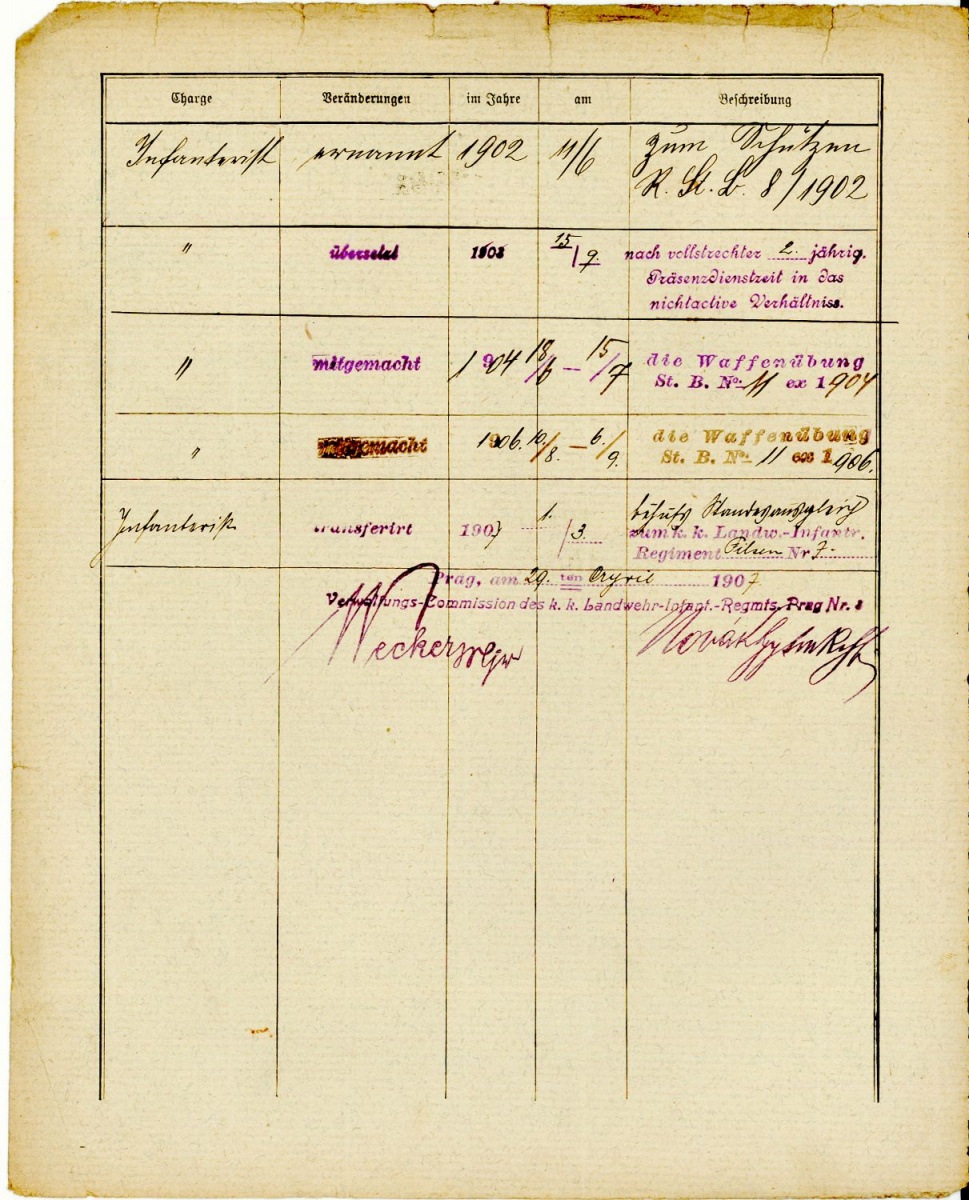 Charge Veränderungen im Jahre am Beschreibung
Infanterist ernannt 1902 11/6 zum Schützen
R. St. B. 8/1902
" übersetzt 1903 15/9. nach vollstreckter 2. jährig.
Präsenzdienstzeit in das
nichtactive Verhältniss.
" mitgemacht 1904 18/6 – 15/7 die Waffenübung
St. B. No. 11 ex 1904
" mitgemacht 1906. 10./8. – 6./9. die Waffenübung
St. B. No. 11 ex 1906.
Infanterist transferirt 1907 1./3. behufs Standesausgleich
zum k. k. Landw.-Infantr.
Regiment Pilsen Nr 7.
Prag, am 29. ten April 1907
Verwaltungs-Commission des k. k. Landwehr-Infant.-Regmts. Prag Nr. 8
Novák